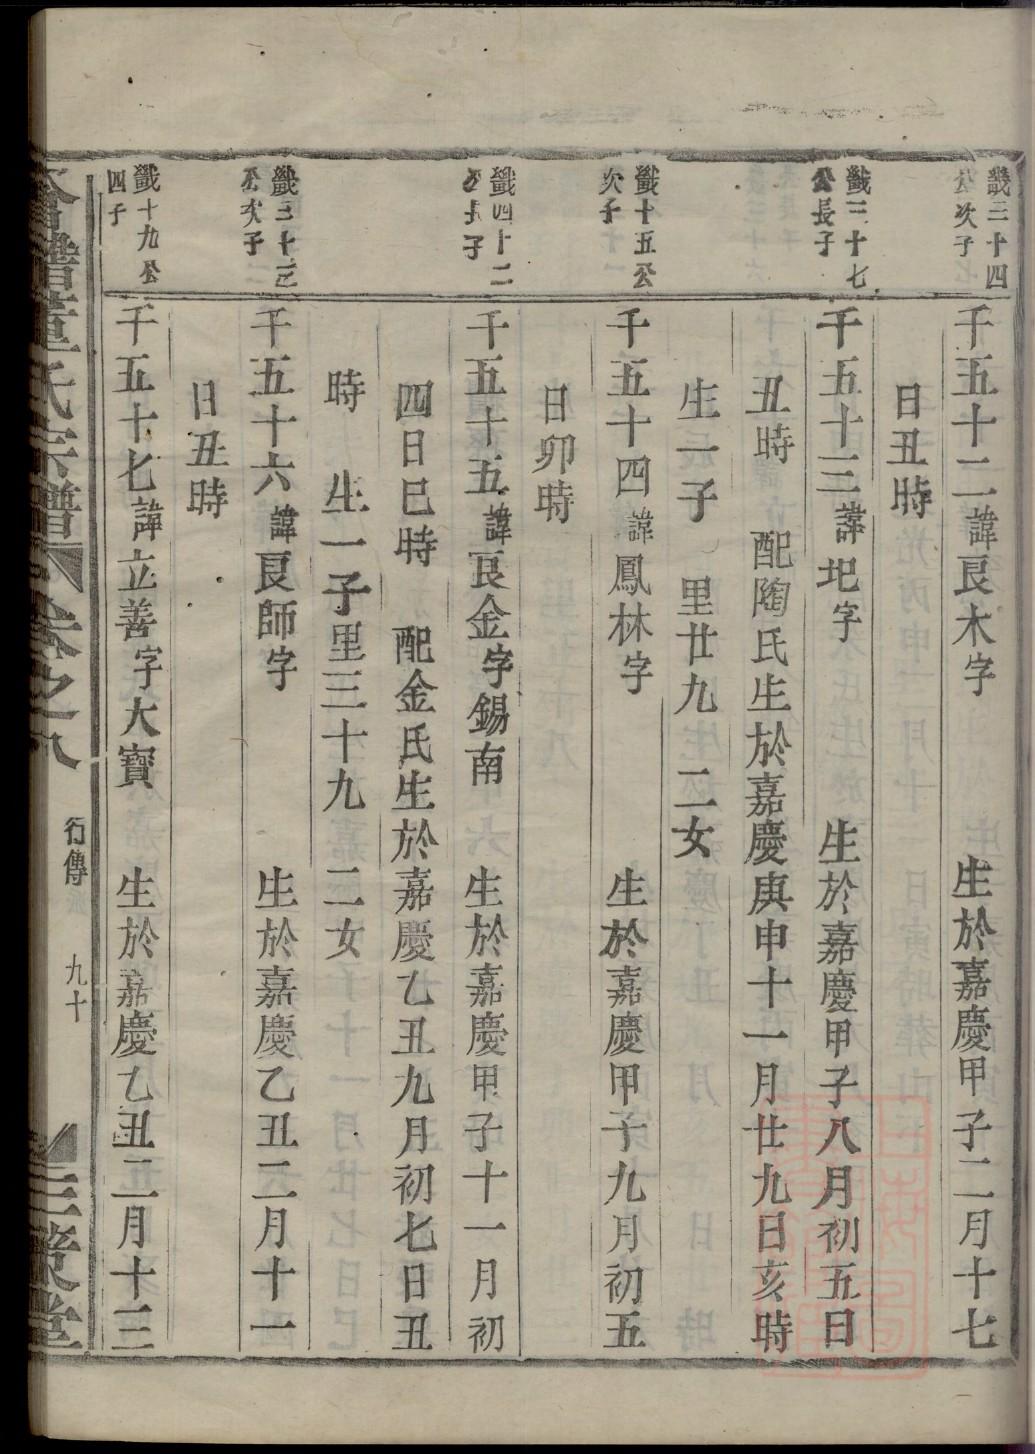 鐵三十四
公次子
千五十二諱艮木字 生於嘉慶甲子二月十七
日丑時
鐵三十七
公長子
千五十三諱圯字 生於嘉慶甲子八月初五日
丑時 配陶氏生於嘉慶庚申十一月廿九日亥時
生一子 里廿九 二女
鐵十五公
次子
千五十四諱鳳林字 生於嘉慶甲子九月初五
日卯時
鐵四十二
公長子
千五十五諱艮金字錫南 生於嘉慶甲子十一月初
四日巳時 配金氏生於嘉慶乙丑九月初七日丑
時 生一子里三十九 二女
鐵三十三
公次子
千五十六諱艮師字 生於嘉慶乙丑二月十一
日丑時
鐵十九公
四子
千五十七諱立善字大寶 生於嘉慶乙丑五二月十三
董氏宗譜 卷之八 行傳 九十 三策堂